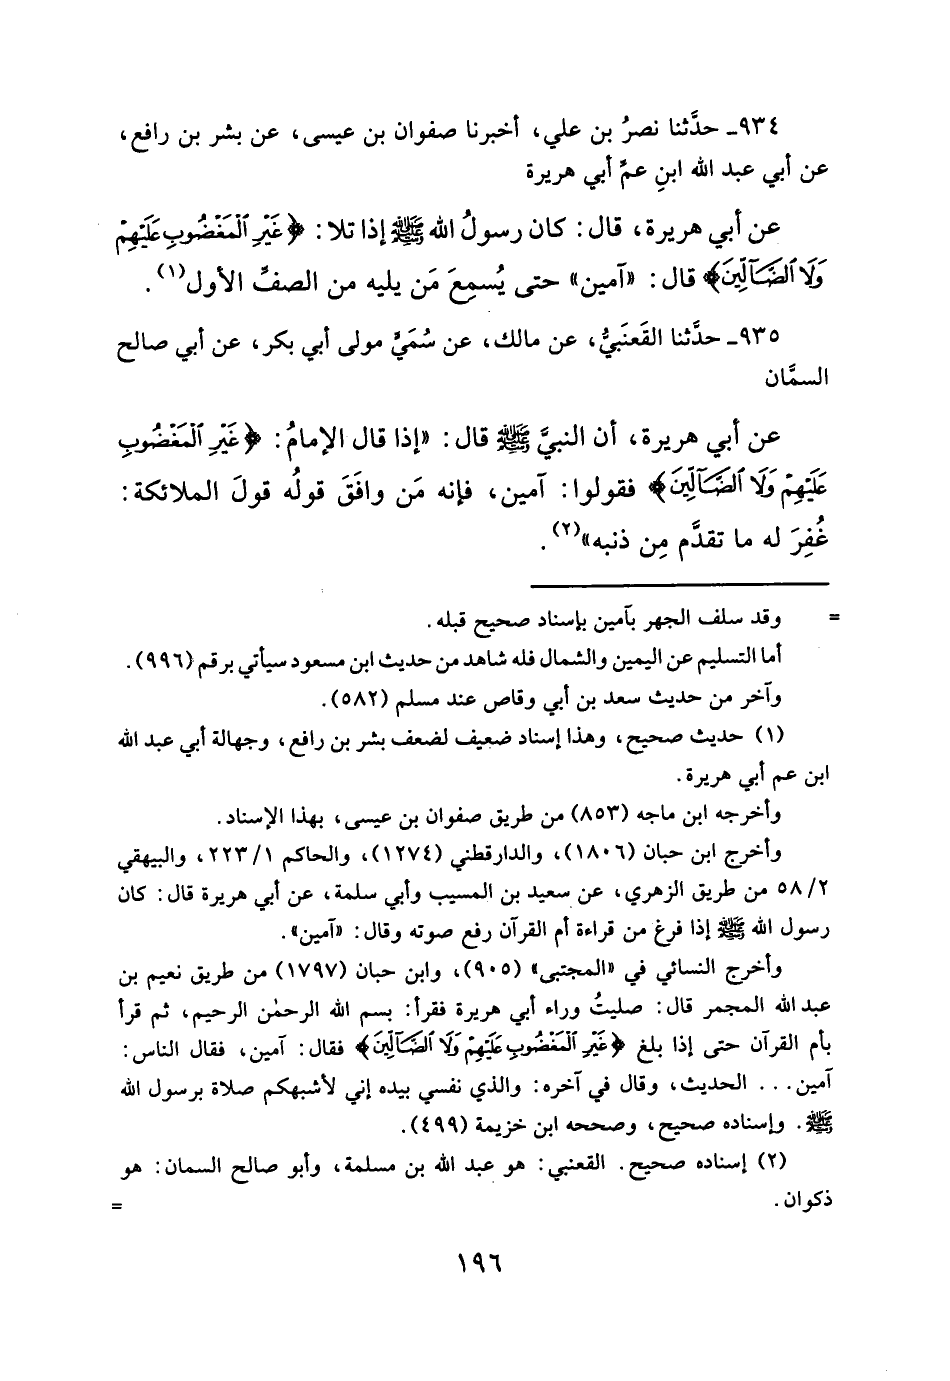 ٩٣٤ـ حدَّثنا نصرُ بن علي، أخبرنا صفوان بن عيسى، عن بشر بن رافع،
عن أبي عبد الله ابنِ عمِّ أبي هريرة
عن أبي هريرة، قال: كان رسولُ الله ﷺ إذا تلا: ﴿غَيْرِ ٱلْمَغْضُوبِ عَلَيْهِمْ
وَلَا ٱلضَّآلِّينَ﴾ قال: «آمين» حتى يُسمِعَ مَن يليه من الصفِّ الأول(١).
٩٣٥ـ حدَّثنا القَعنَبيُّ، عن مالك، عن سُمَيٍّ مولى أبي بكر، عن أبي صالح
السمَّان
عن أبي هريرة، أن النبيَّ ﷺ قال: «إذا قال الإمامُ: ﴿غَيْرِ ٱلْمَغْضُوبِ
عَلَيْهِمْ وَلَا ٱلضَّآلِّينَ﴾ فقولوا: آمين، فإنه مَن وافَقَ قولُه قولَ الملائكة:
غُفِرَ له ما تقدَّم مِن ذنبه»(٢).
= وقد سلف الجهر بآمين بإسناد صحيح قبله.
أما التسليم عن اليمين والشمال فله شاهد من حديث ابن مسعود سيأتي برقم (٩٩٦).
وآخر من حديث سعد بن أبي وقاص عند مسلم (٥٨٢).
(١) حديث صحيح، وهذا إسناد ضعيف لضعف بشر بن رافع، وجهالة أبي عبد الله
ابن عم أبي هريرة.
وأخرجه ابن ماجه (٨٥٣) من طريق صفوان بن عيسى، بهذا الإسناد.
وأخرج ابن حبان (١٨٠٦)، والدارقطني (١٢٧٤)، والحاكم ٢٢٣/١، والبيهقي
٥٨/٢ من طريق الزهري، عن سعيد بن المسيب وأبي سلمة، عن أبي هريرة قال: كان
رسول الله ﷺ إذا فرغ من قراءة أم القرآن رفع صوته وقال: «آمين».
وأخرج النسائي في «المجتبى» (٩٠٥)، وابن حبان (١٧٩٧) من طريق نعيم بن
عبد الله المجمر قال: صليتُ وراء أبي هريرة فقرأ: بسم الله الرحمٰن الرحيم، ثم قرأ
بأم القرآن حتى إذا بلغ ﴿غَيْرِ ٱلْمَغْضُوبِ عَلَيْهِمْ وَلَا ٱلضَّآلِّينَ﴾ فقال: آمين، فقال الناس:
آمين... الحديث، وقال في آخره: والذي نفسي بيده إني لأشبهكم صلاة برسول الله
ﷺ. وإسناده صحيح، وصححه ابن خزيمة (٤٩٩).
(٢) إسناده صحيح. القعنبي: هو عبد الله بن مسلمة، وأبو صالح السمان: هو
ذكوان. =
١٩٦